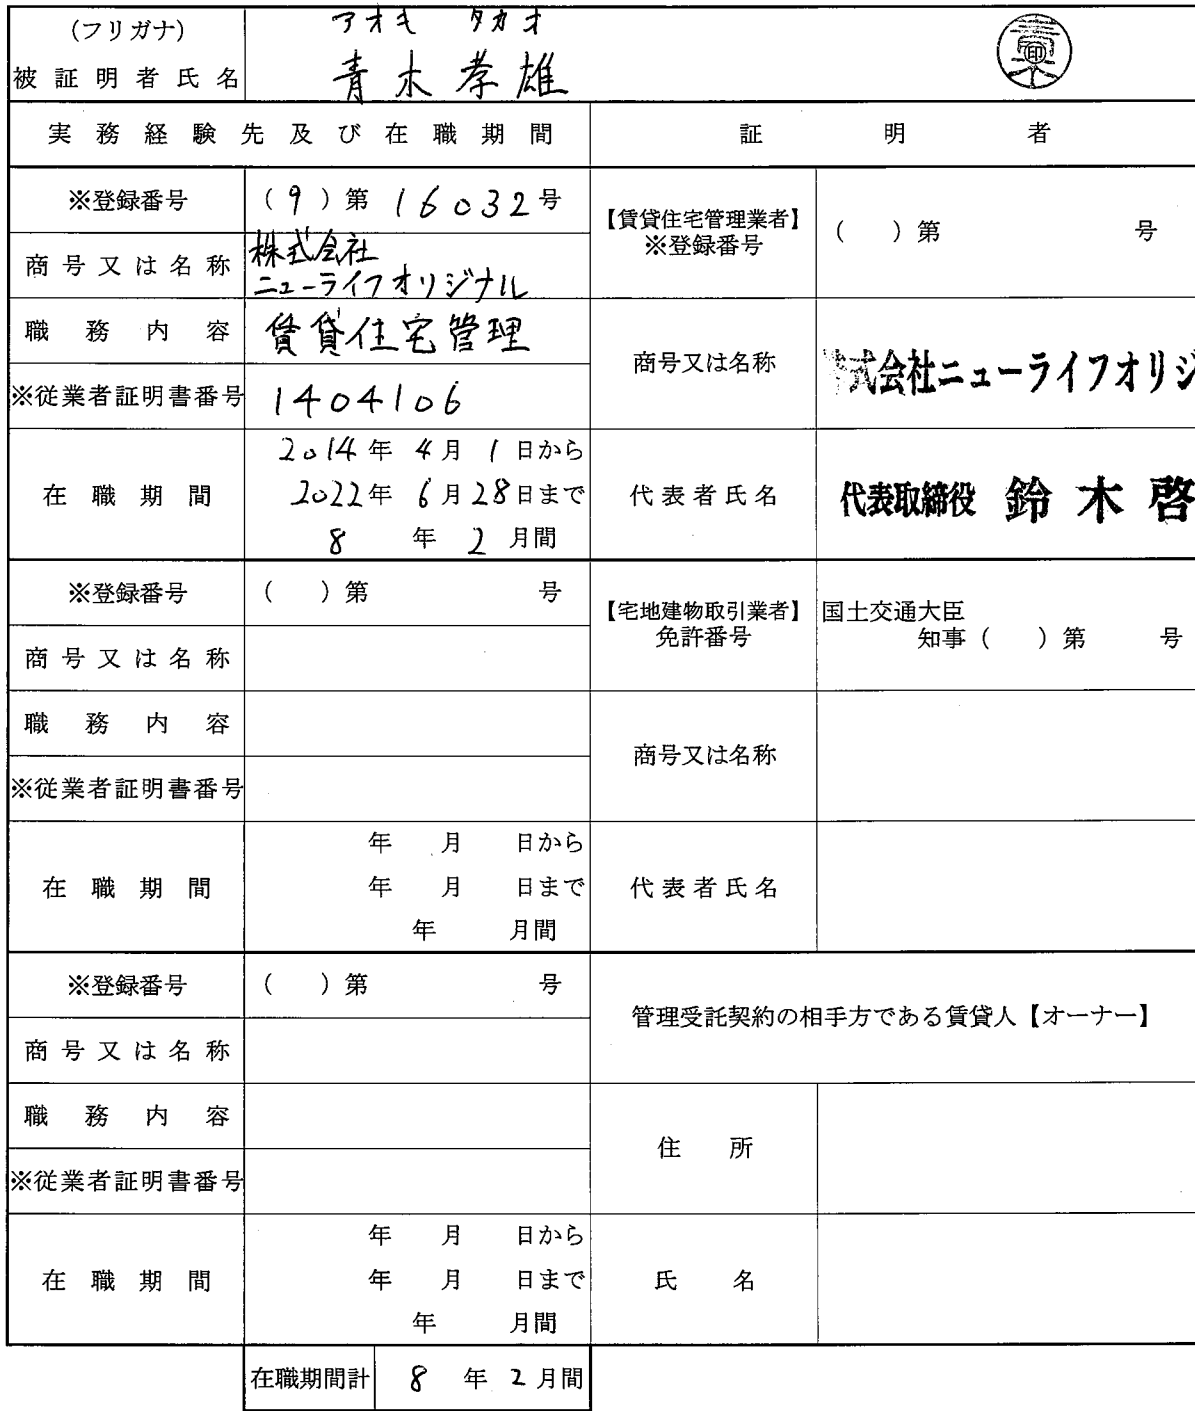 (フリガナ) アオキ タカオ
被証明者氏名 青木孝雄 印
実務経験先及び在職期間 証明者
※登録番号 (9)第16032号
【賃貸住宅管理業者】
※登録番号 ( )第 号
商号又は名称 株式会社
ニューライフオリジナル
職務内容 賃貸住宅管理
商号又は名称 株式会社ニューライフオリジ
※従業者証明書番号 1404106
在職期間
2014年4月1日から
2022年6月28日まで
8年2月間
代表者氏名 代表取締役 鈴木啓
※登録番号 ( )第 号
【宅地建物取引業者】
免許番号
国土交通大臣
知事( )第 号
商号又は名称
職務内容
商号又は名称
※従業者証明書番号
在職期間
年 月 日から
年 月 日まで
年 月間
代表者氏名
※登録番号 ( )第 号
管理受託契約の相手方である賃貸人【オーナー】
商号又は名称
職務内容
住所
※従業者証明書番号
在職期間
年 月 日から
年 月 日まで
年 月間
氏名
在職期間計 8年2月間